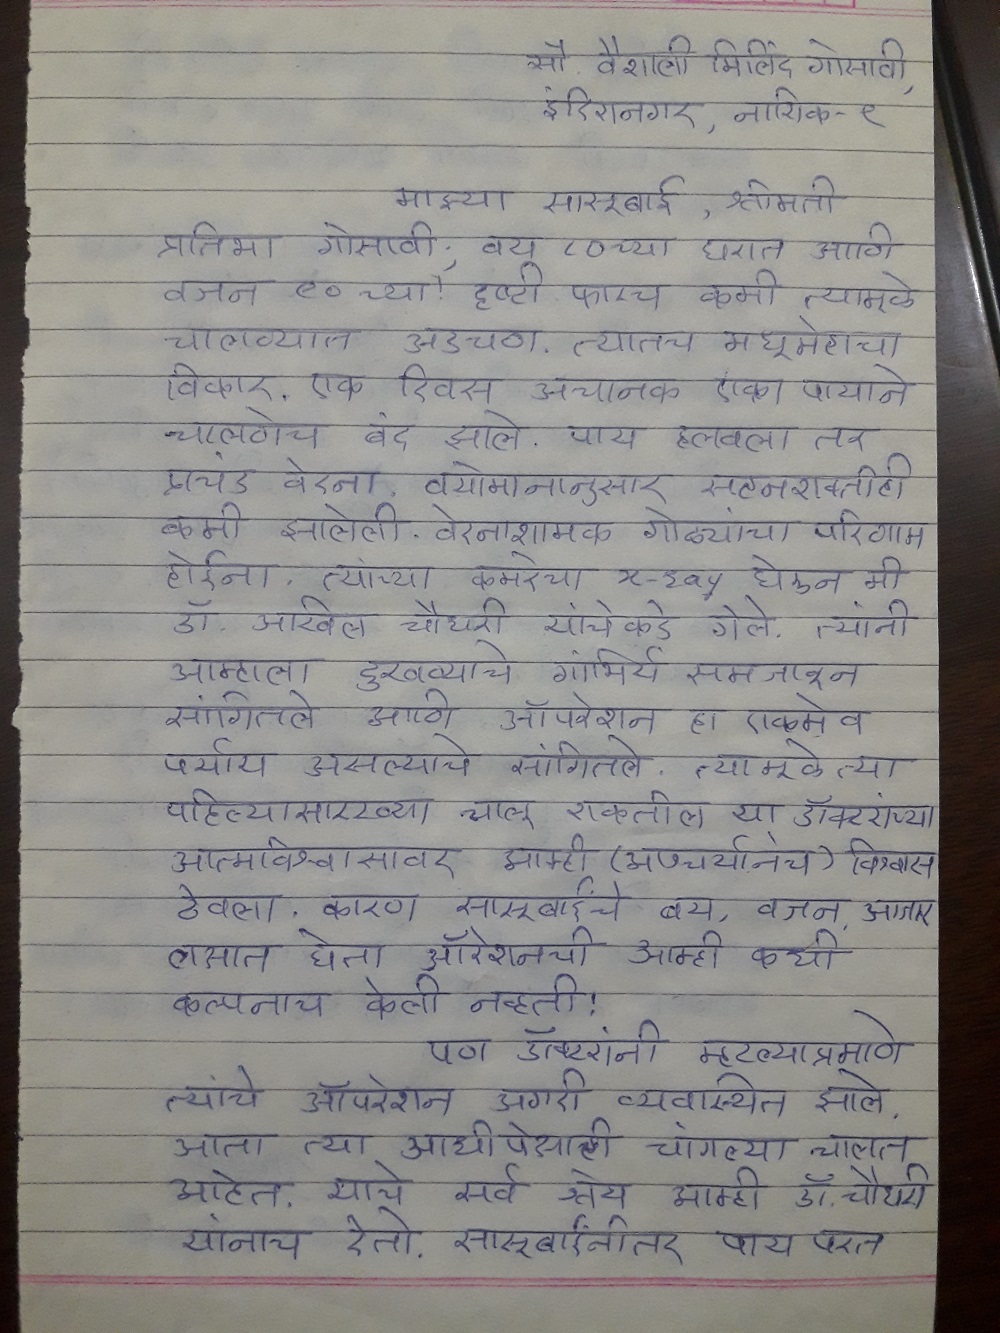 सौ. वैशाली मिलिंद गोसावी,
इंदिरानगर, नाशिक-९
माझ्या सासूबाई, श्रीमती
प्रतिभा गोसावी, वय ८०च्या घरात आणि
वजन ९० च्या! दृष्टी फारच कमी त्यामूळे
चालण्यात अडचण. त्यातच मधूमेहाचा
विकार. एक दिवस अचानक एका पायाने
चालणेच बंद झाले. पाय हलवला तर
प्रचंड वेदना. वयोमानानुसार सहनशक्तीही
कमी झालेली. वेदनाशामक गोळ्यांचा परिणाम
होईना. त्यांच्या कमरेचा x-ray घेऊन मी
डॉ. अखिल चौधरी यांचेकडे गेले. त्यांनी
आम्हाला दुखण्याचे गांभिर्य समजावून
सांगितले आणि ऑपरेशन हा एकमेव
पर्याय असल्याचे सांगितले. त्यामूळे त्या
पहिल्यासारख्या चालू शकतील या डॉक्टरांच्या
आत्मविश्वासावर आम्ही (आश्चर्यानेच) विश्वास
ठेवला. कारण सासूबाईंचे वय, वजन, आजार
लक्षात घेता ऑरेशनची आम्ही कधी
कल्पनाच केली नव्हती!
पण डॉक्टरांनी म्हटल्याप्रमाणे
त्यांचे ऑपरेशन अगदी व्यवास्थित झाले.
आता त्या आधीपेक्षाही चांगल्या चालत
आहेत. याचे सर्व श्रेय आम्ही डॉ. चौधरी
यांनाच देतो. सासूबाईंनीतर पाय परत